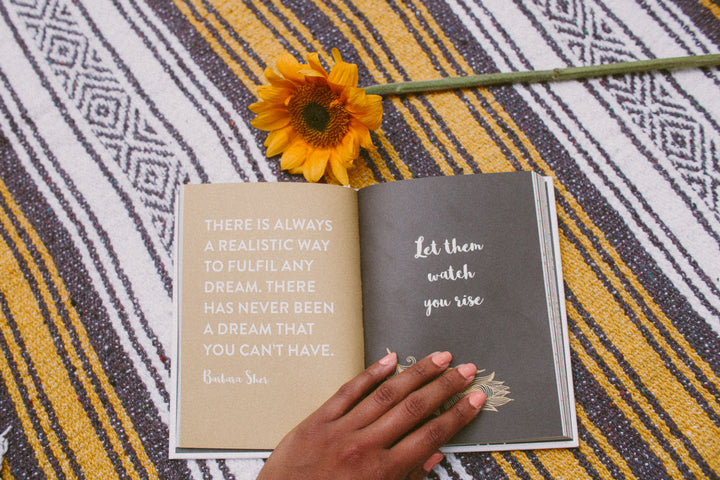 THERE IS ALWAYS
A REALISTIC WAY
TO FULFIL ANY
DREAM. THERE
HAS NEVER BEEN
A DREAM THAT
YOU CAN'T HAVE.
Barbara Sher
Let them
watch
you rise